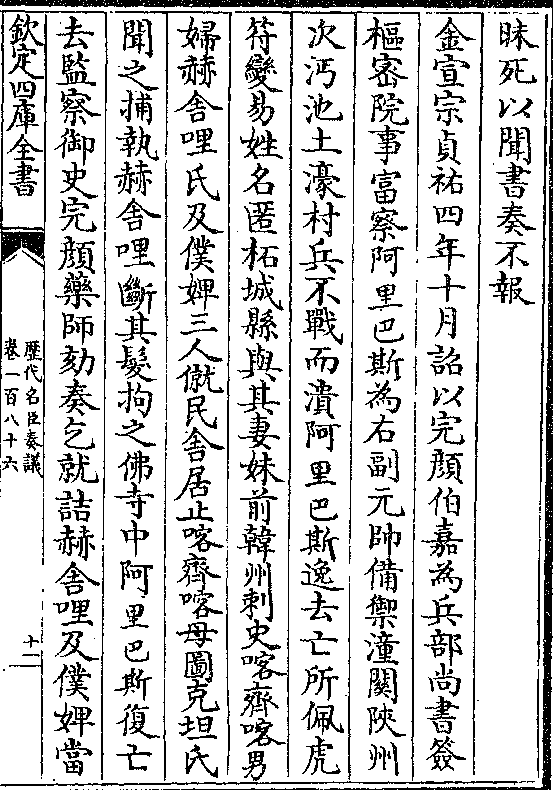 昧死以聞書奏不報
金宣宗貞祐四年十月詔以完顔伯嘉為兵部尚書簽
樞密院事富察阿里巴斯為右副元帥備禦潼闗陜州
次沔池土濠村兵不戰而潰阿里巴斯逸去亡所佩虎
符變易姓名匿柘城縣與其妻妹前韓州刺史喀齊喀男
婦赫舎哩氏及僕婢三人僦民舎居止喀齊喀母圖克坦氏
聞之捕執赫舎哩斷其髮拘之佛寺中阿里巴斯復亡
去監察御史完顔藥師劾奏乞就詰赫舎哩及僕婢當
欽定四庫全書
歴代名臣奏議
卷一百八十六
十二